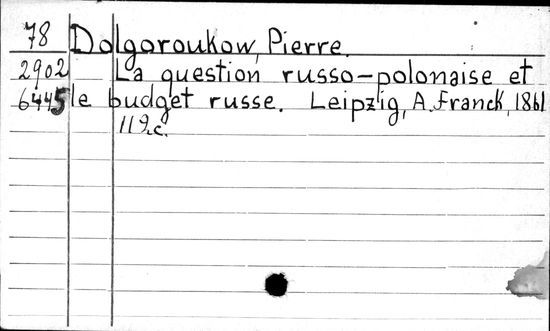 78 Dolgoroukow, Pierre.
2902 La question russo-polonaise et
6445 le budget russe. Leipzig, A. Franck, 1861
119.c.